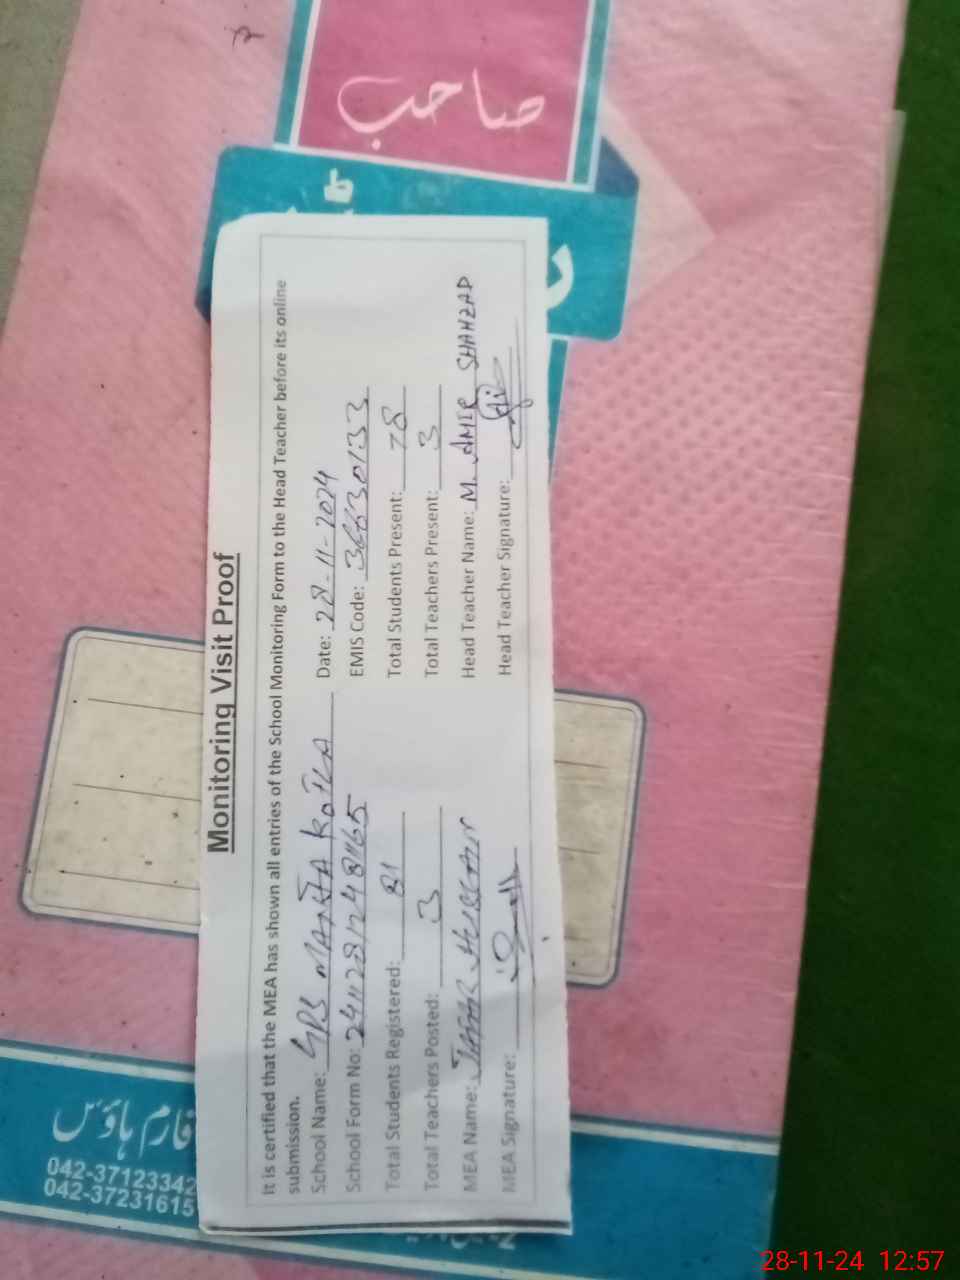 صاحب
Monitoring Visit Proof
It is certified that the MEA has shown all entries of the School Monitoring Form to the Head Teacher before its online
submission.
School Name: GPS MANJA KOTLA Date: 28-11-2024
School Form No: EMIS Code: 36630133
Total Students Registered: 81 Total Students Present: 78
Total Teachers Posted: 3 Total Teachers Present: 3
MEA Name: Head Teacher Name: M. AMIR SHAHZAD
MEA Signature: Head Teacher Signature:
فارم ہاؤس
042-37123342
042-37231615
28-11-24 12:57